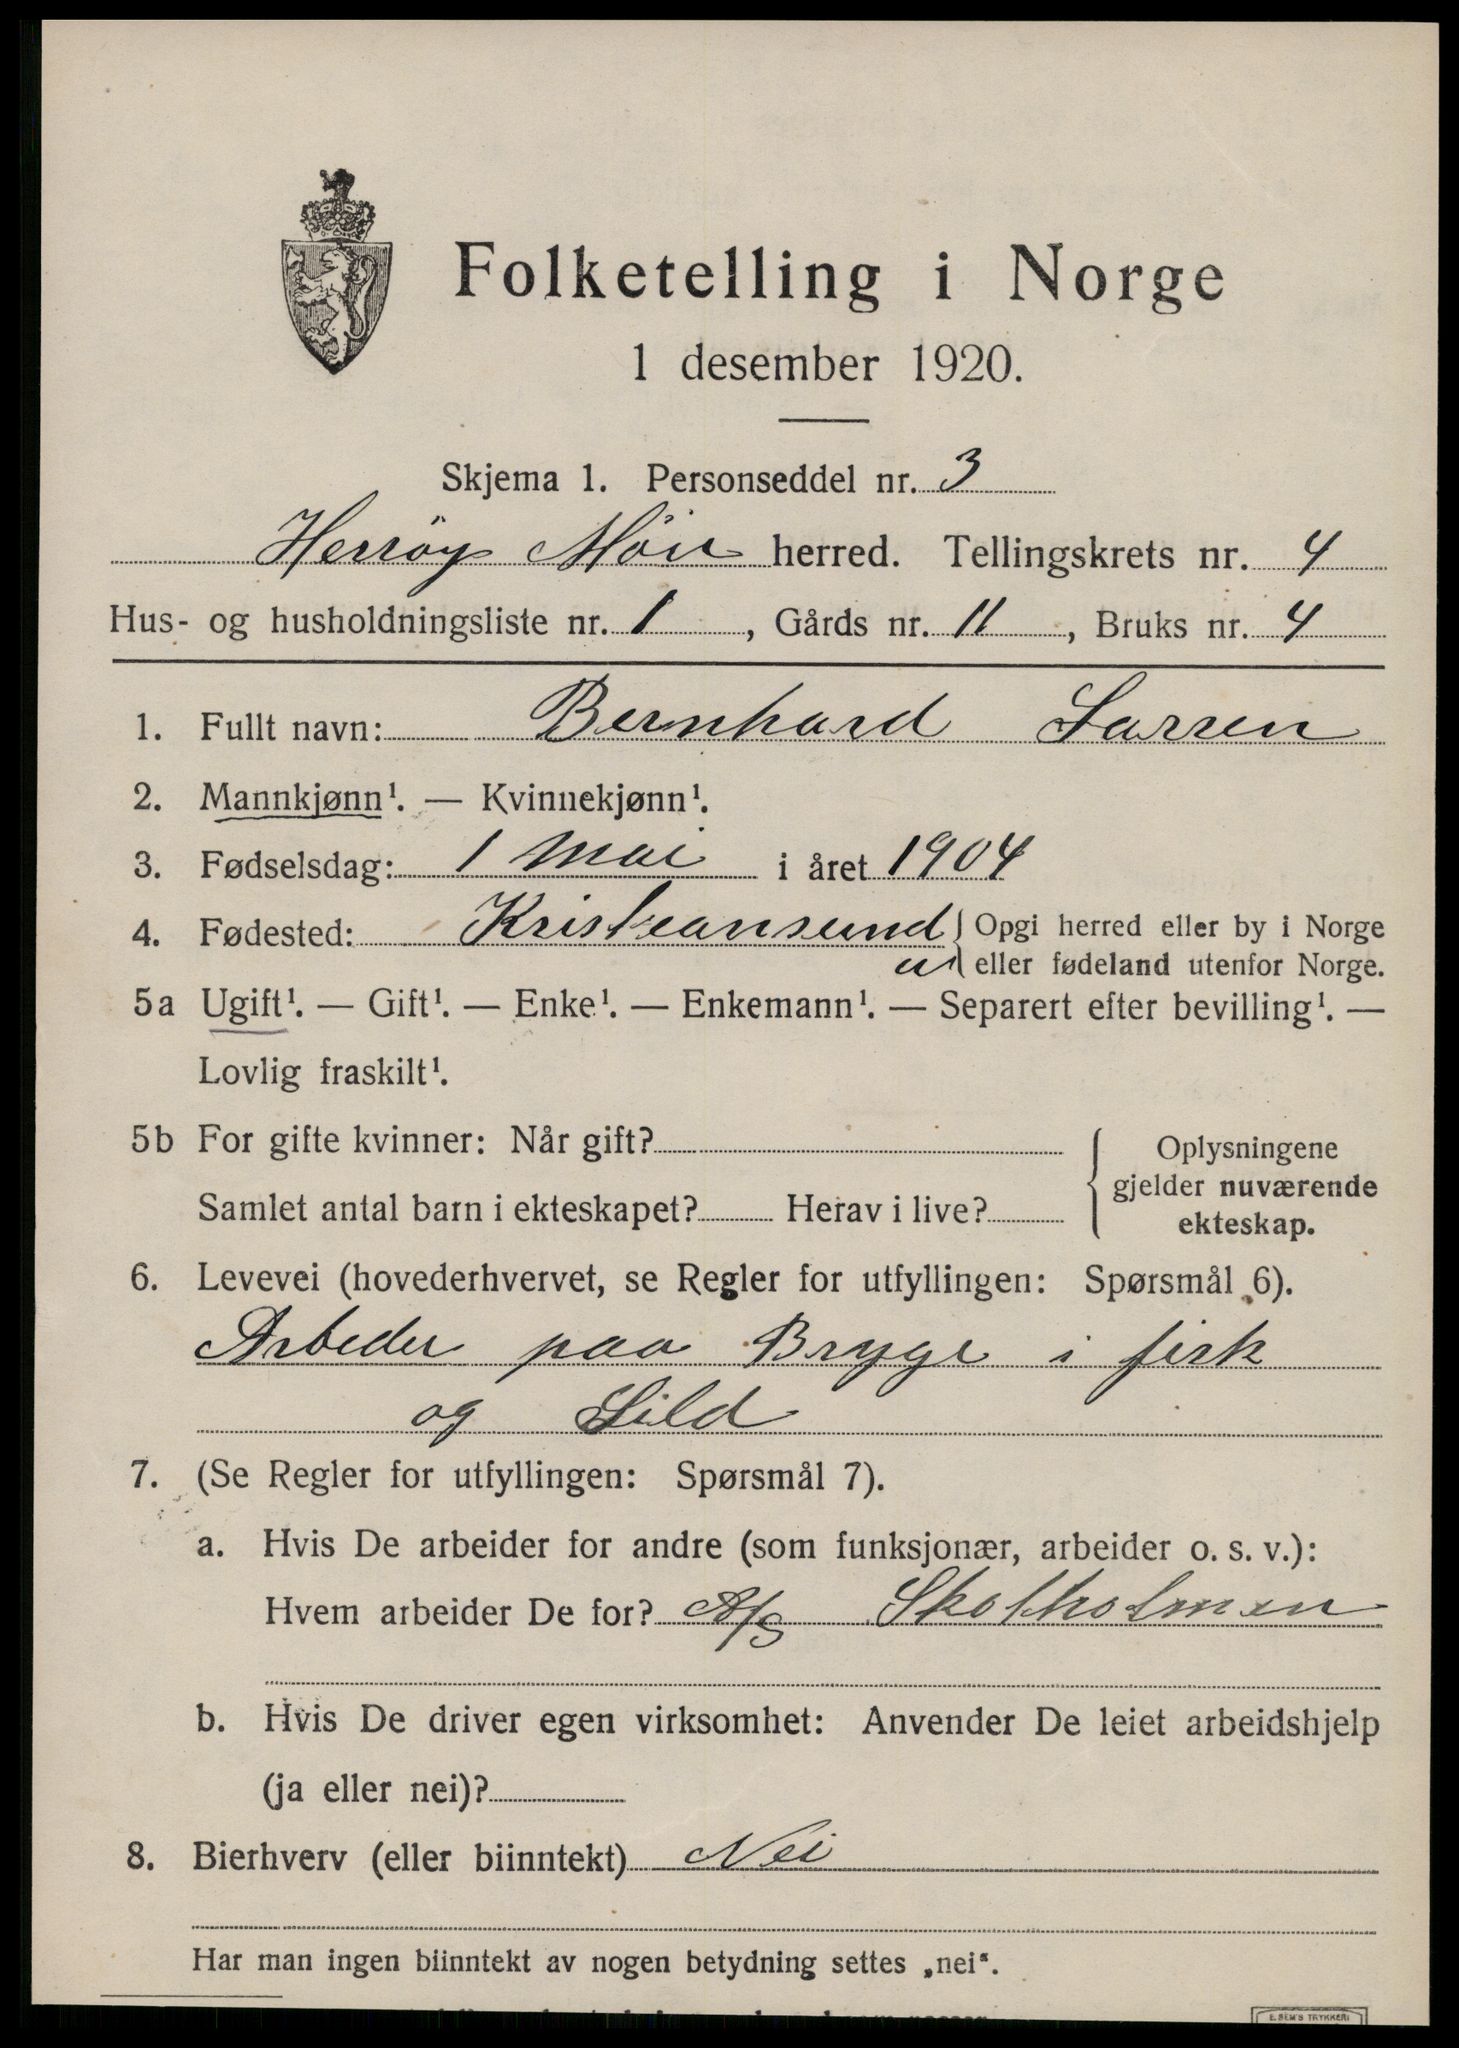 Folketelling i Norge
1 desember 1920.
Skjema 1. Personseddel nr. 3
Herröy Möre herred. Tellingskrets nr. 4
Hus- og husholdningsliste nr. 1, Gårds nr. 11, Bruks nr. 4
1. Fullt navn: Bernhard Larsen
2. Mannkjønn¹. — Kvinnekjønn¹.
3. Fødselsdag: 1 Mai i året 1904
4. Fødested: Kristeansund { Opgi herred eller by i Norge
eller fødeland utenfor Norge.
5a Ugift¹. — Gift¹. — Enke¹. — Enkemann¹. — Separert efter bevilling¹. —
Lovlig fraskilt¹.
5b For gifte kvinner: Når gift?
Samlet antal barn i ekteskapet? Herav i live?
Oplysningene
gjelder nuværende
ekteskap.
6. Levevei (hovederhvervet, se Regler for utfyllingen: Spørsmål 6).
Arbeder paa Brygge i fisk
og Sild
7. (Se Regler for utfyllingen: Spørsmål 7).
a. Hvis De arbeider for andre (som funksjonær, arbeider o. s. v.):
Hvem arbeider De for? A/S Skotholmen
b. Hvis De driver egen virksomhet: Anvender De leiet arbeidshjelp
(ja eller nei)?
8. Bierhverv (eller biinntekt) Nei
Har man ingen biinntekt av nogen betydning settes „nei“.
E. SEM'S TRYKKERI